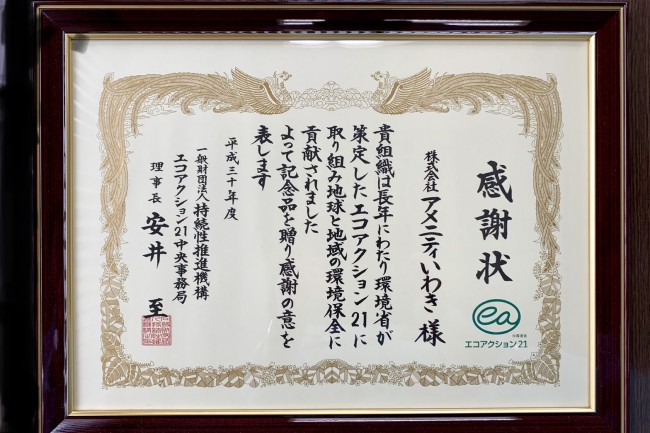 感謝状
株式会社 アメニティいわき 様
貴組織は長年にわたり環境省が
策定したエコアクション21に
取り組み地球と地域の環境保全に
貢献されました
よって記念品を贈り感謝の意を
表します
平成三十年度
一般財団法人 持続性推進機構
エコアクション21中央事務局
理事長 安井 至
ea
エコアクション21